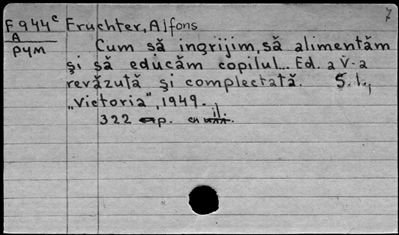 7
F 944c Fruchter, Alfons
A
P4M
Cum să ingrijim, să alimentăm
și să educăm copilul... Ed. a V-a
revăzută și complectată. S. l.,
„Victoria", 1949.
322 p. cu il.